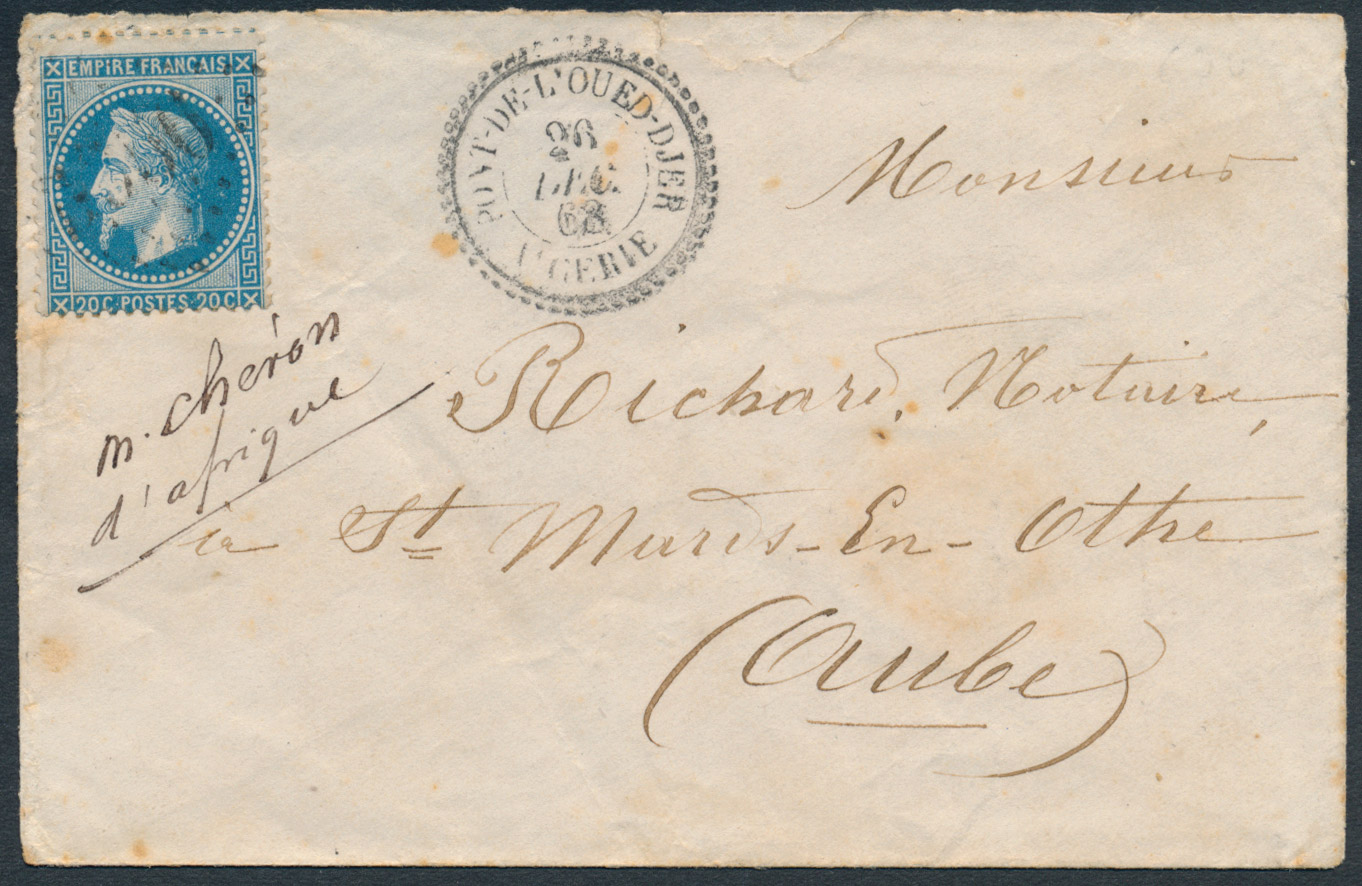 EMPIRE FRANCAIS
20C POSTES 20C
PONT-DE-L'OUED-DJER
26
DEC.
68
ALGERIE
Monsieur
Richard, Notaire,
à St Mards-En-Othe
(Aube)
m. chéron
d'afrique